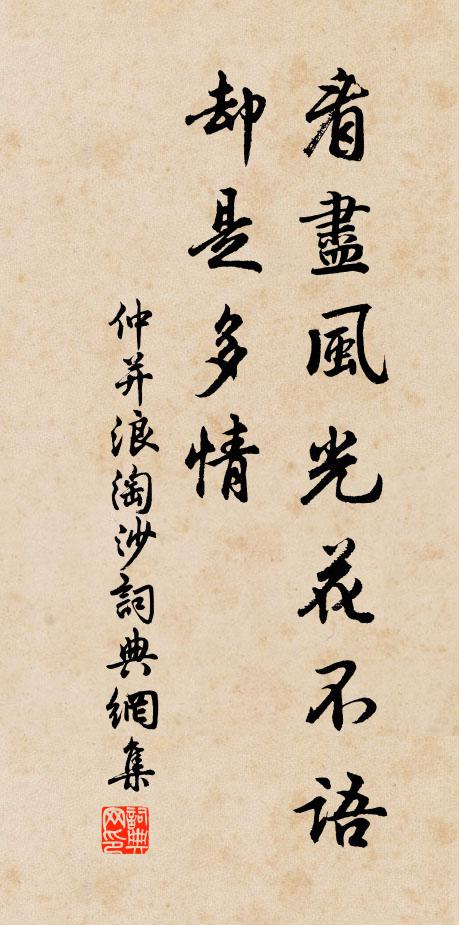 看盡風光花不語
却是多情
仲并浪淘沙詞典網集
詞典网印